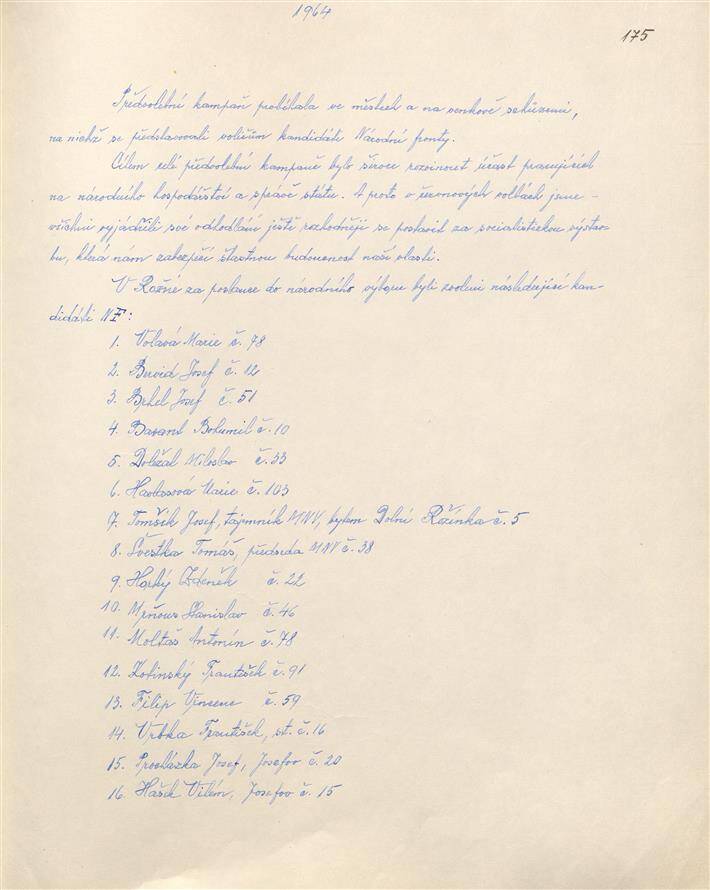 1964
175
Předvolební kampaň probíhala ve městech a na venkově schůzemi,
na nichž se představovali voličům kandidáti Národní fronty.
Cílem celé předvolební kampaně bylo široce rozvinout účast pracujících
na národního hospodářství a správě státu. A proto v červnových volbách jsme
všichni vyjádřili své odhodlání ještě rozhodněji se postavit za socialistickou výstav-
bu, která nám zabezpečí šťastnou budoucnost naší vlasti.
V Rožné za poslance do národního výboru byli zvoleni následující kan-
didáti NF:
1. Volavá Marie č. 78
2. Bervid Josef č. 12
3. Brhel Josef č. 51
4. Basant Bohumil č. 10
5. Doležal Miloslav č. 33
6. Marie č. 103
7. Tomšík Josef, tajemník MNV, bytem Dolní Rožínka č. 5
8. Švestka Tomáš, předseda MNV č. 38
9. Horký Zdeněk č. 22
10. Mrňous Stanislav č. 46
11. Moltaš Antonín č. 78
12. Kotinský František č. 91
13. Filip Vincenc č. 59
14. Vrbka František, st. č. 16
15. Procházka Josef, Josefov č. 20
16. Hašek Vilém, Josefov č. 15